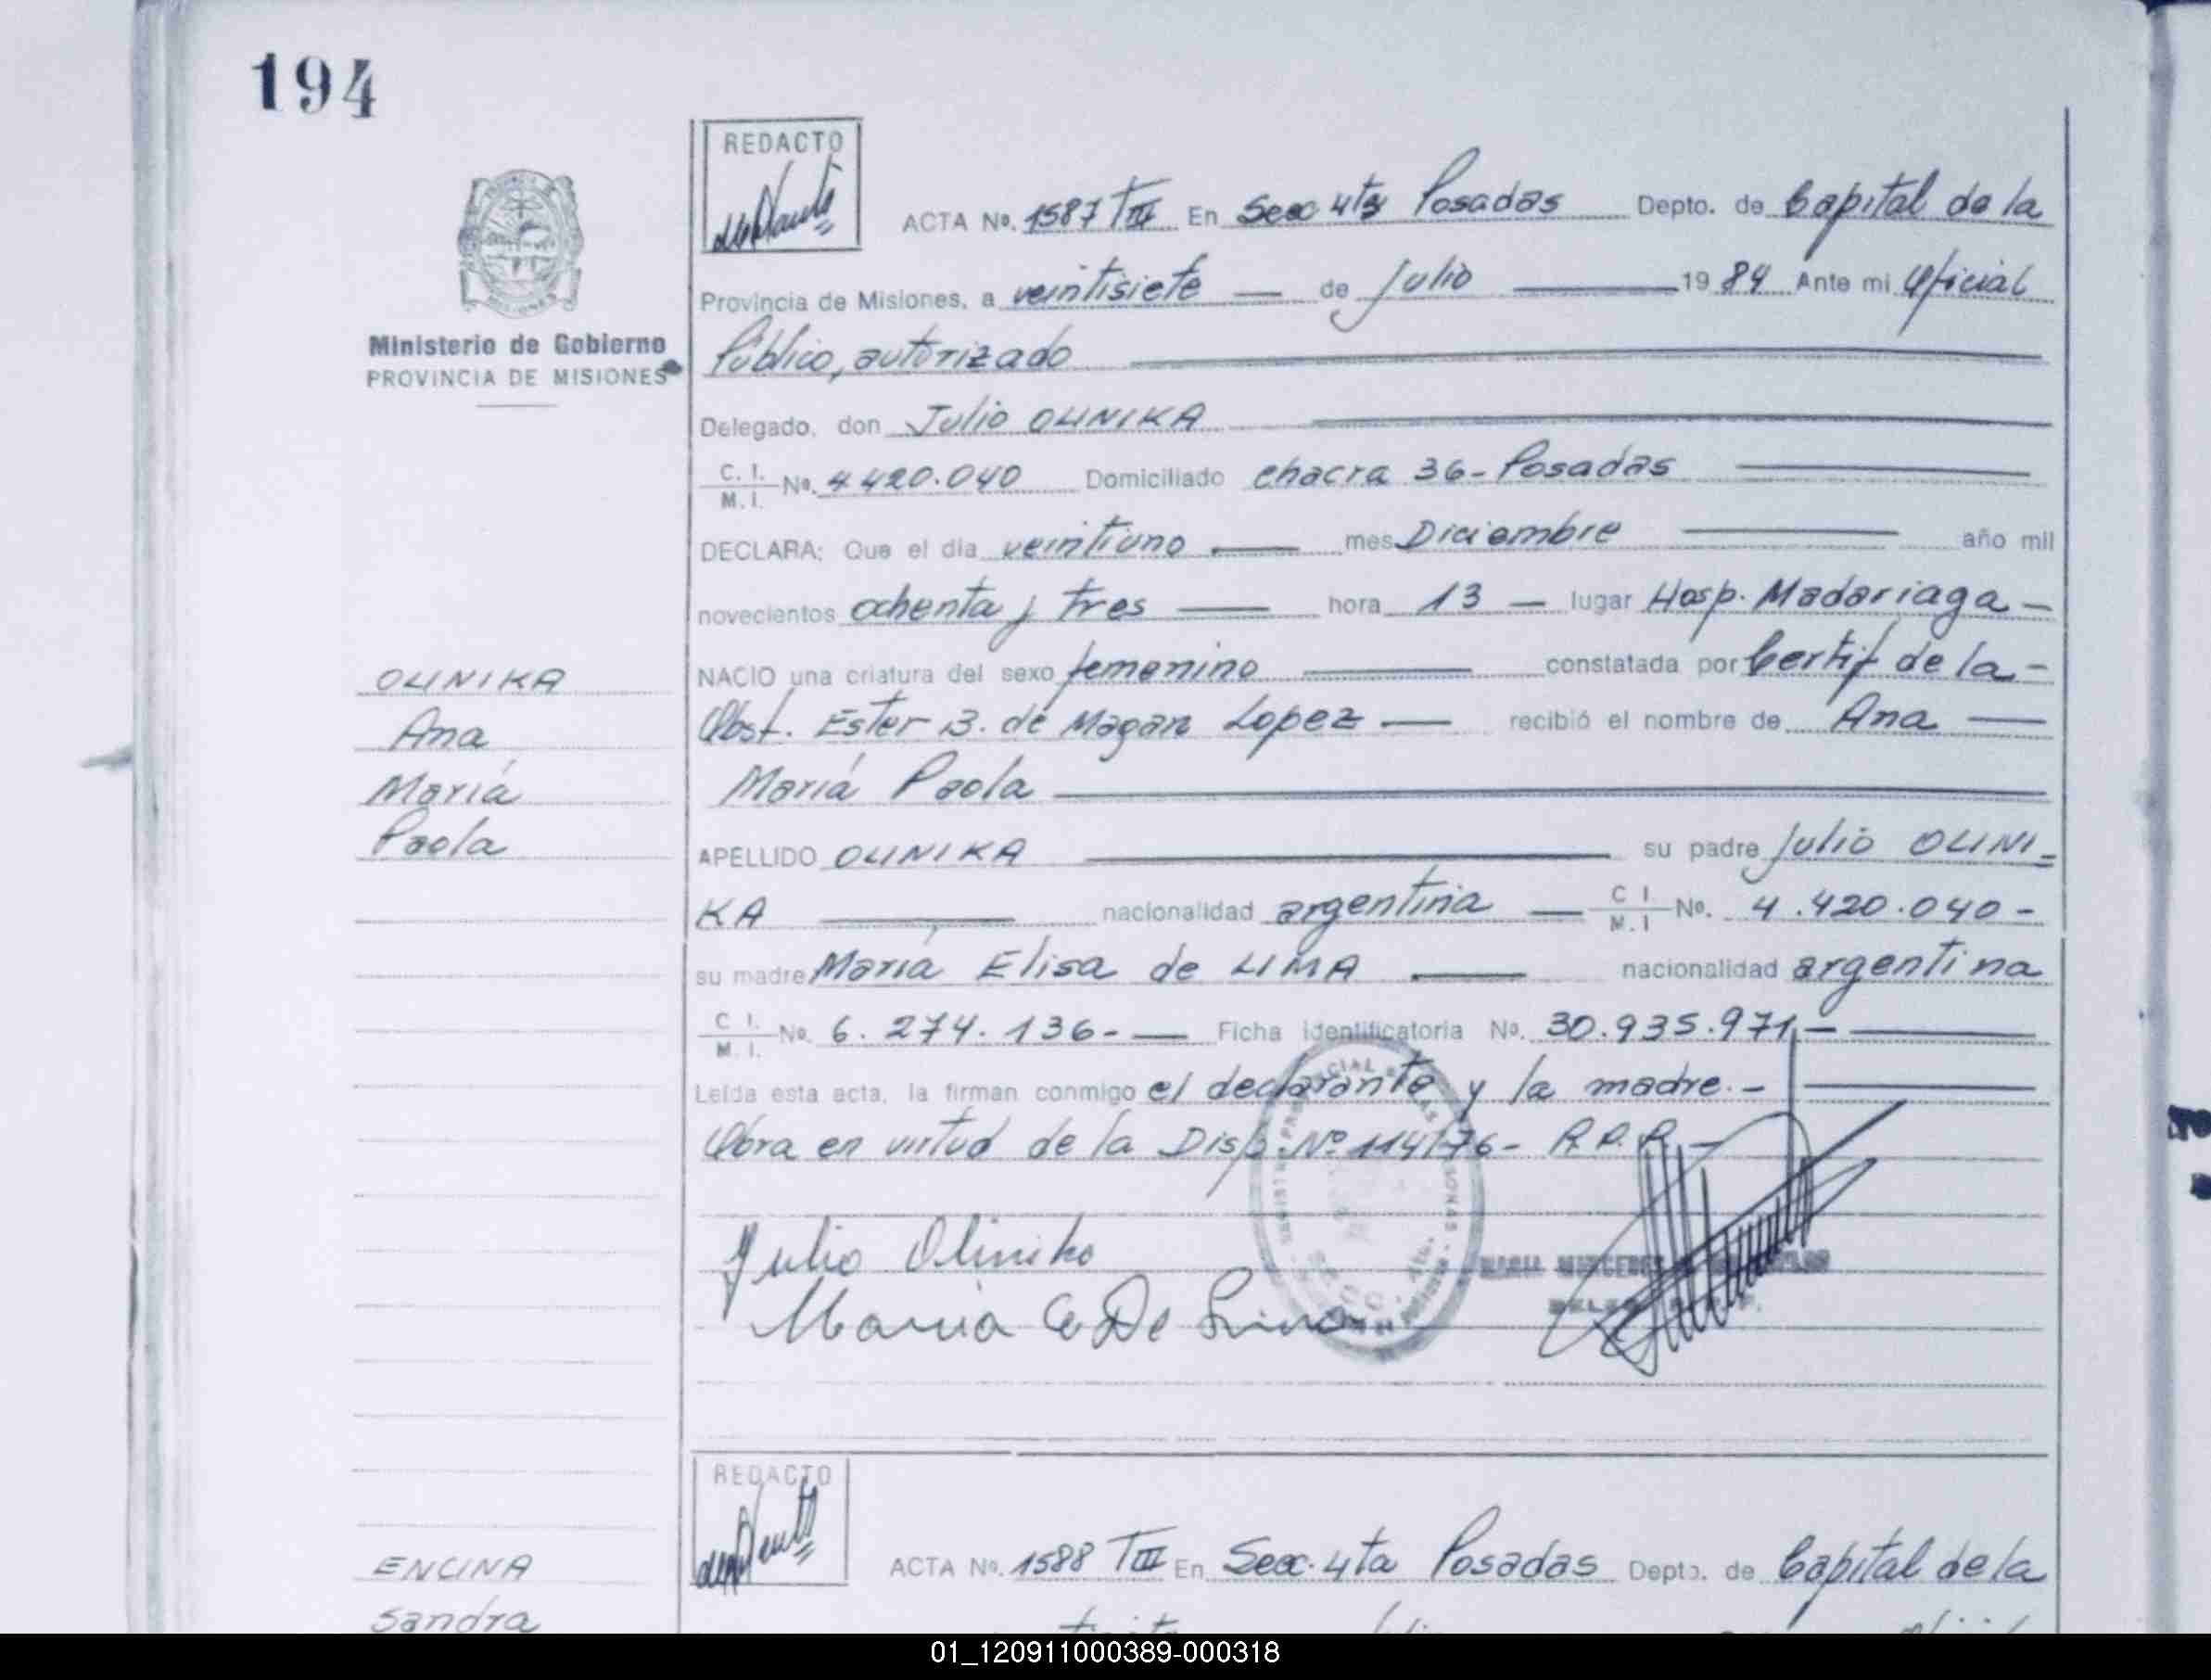 194
REDACTO
ACTA No. 1587 TIII En Secc 4ta Posadas Depto. de Capital de la
Provincia de Misiones, a veintisiete — de Julio — 1984 Ante mi Oficial
Ministerio de Gobierno
PROVINCIA DE MISIONES
Público, autorizado
Delegado, don Julio OLINIKA
C. I.
M. I. No. 4.420.040 Domiciliado chacra 36 - Posadas
DECLARA: Que el dia veintiuno — mes Diciembre — año mil
novecientos ochenta y tres — hora 13 — lugar Hosp. Madariaga —
OLINIKA
NACIO una criatura del sexo femenino — constatada por Certif de la -
Ana
Obst. Ester B. de Magan Lopez — recibió el nombre de Ana —
María
María Paola
Paola
APELLIDO OLINIKA — su padre Julio OLINI=
KA — nacionalidad argentina — C I
M. I No. 4.420.040 -
su madre María Elisa de LIMA — nacionalidad argentina
C I.
M. I. No. 6.274.136 - — Ficha identificatoria No. 30.935.971 -
Leída esta acta, la firman conmigo el declarante y la madre. -
Obra en virtud de la Disp. Nº 114/76 - R.P.P. -
Julio Olinika
Maria E De Lima
MARIA MERCEDES
REDACTO
ACTA No. 1588 TIII En Secc. 4ta Posadas Depto. de Capital de la
ENCINA
Sandra
01_120911000389-000318